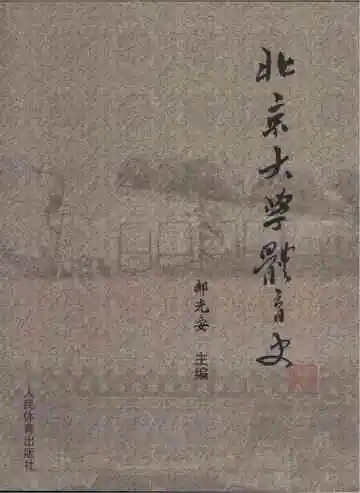 北京大学體育史
郝光安 主编
人民体育出版社